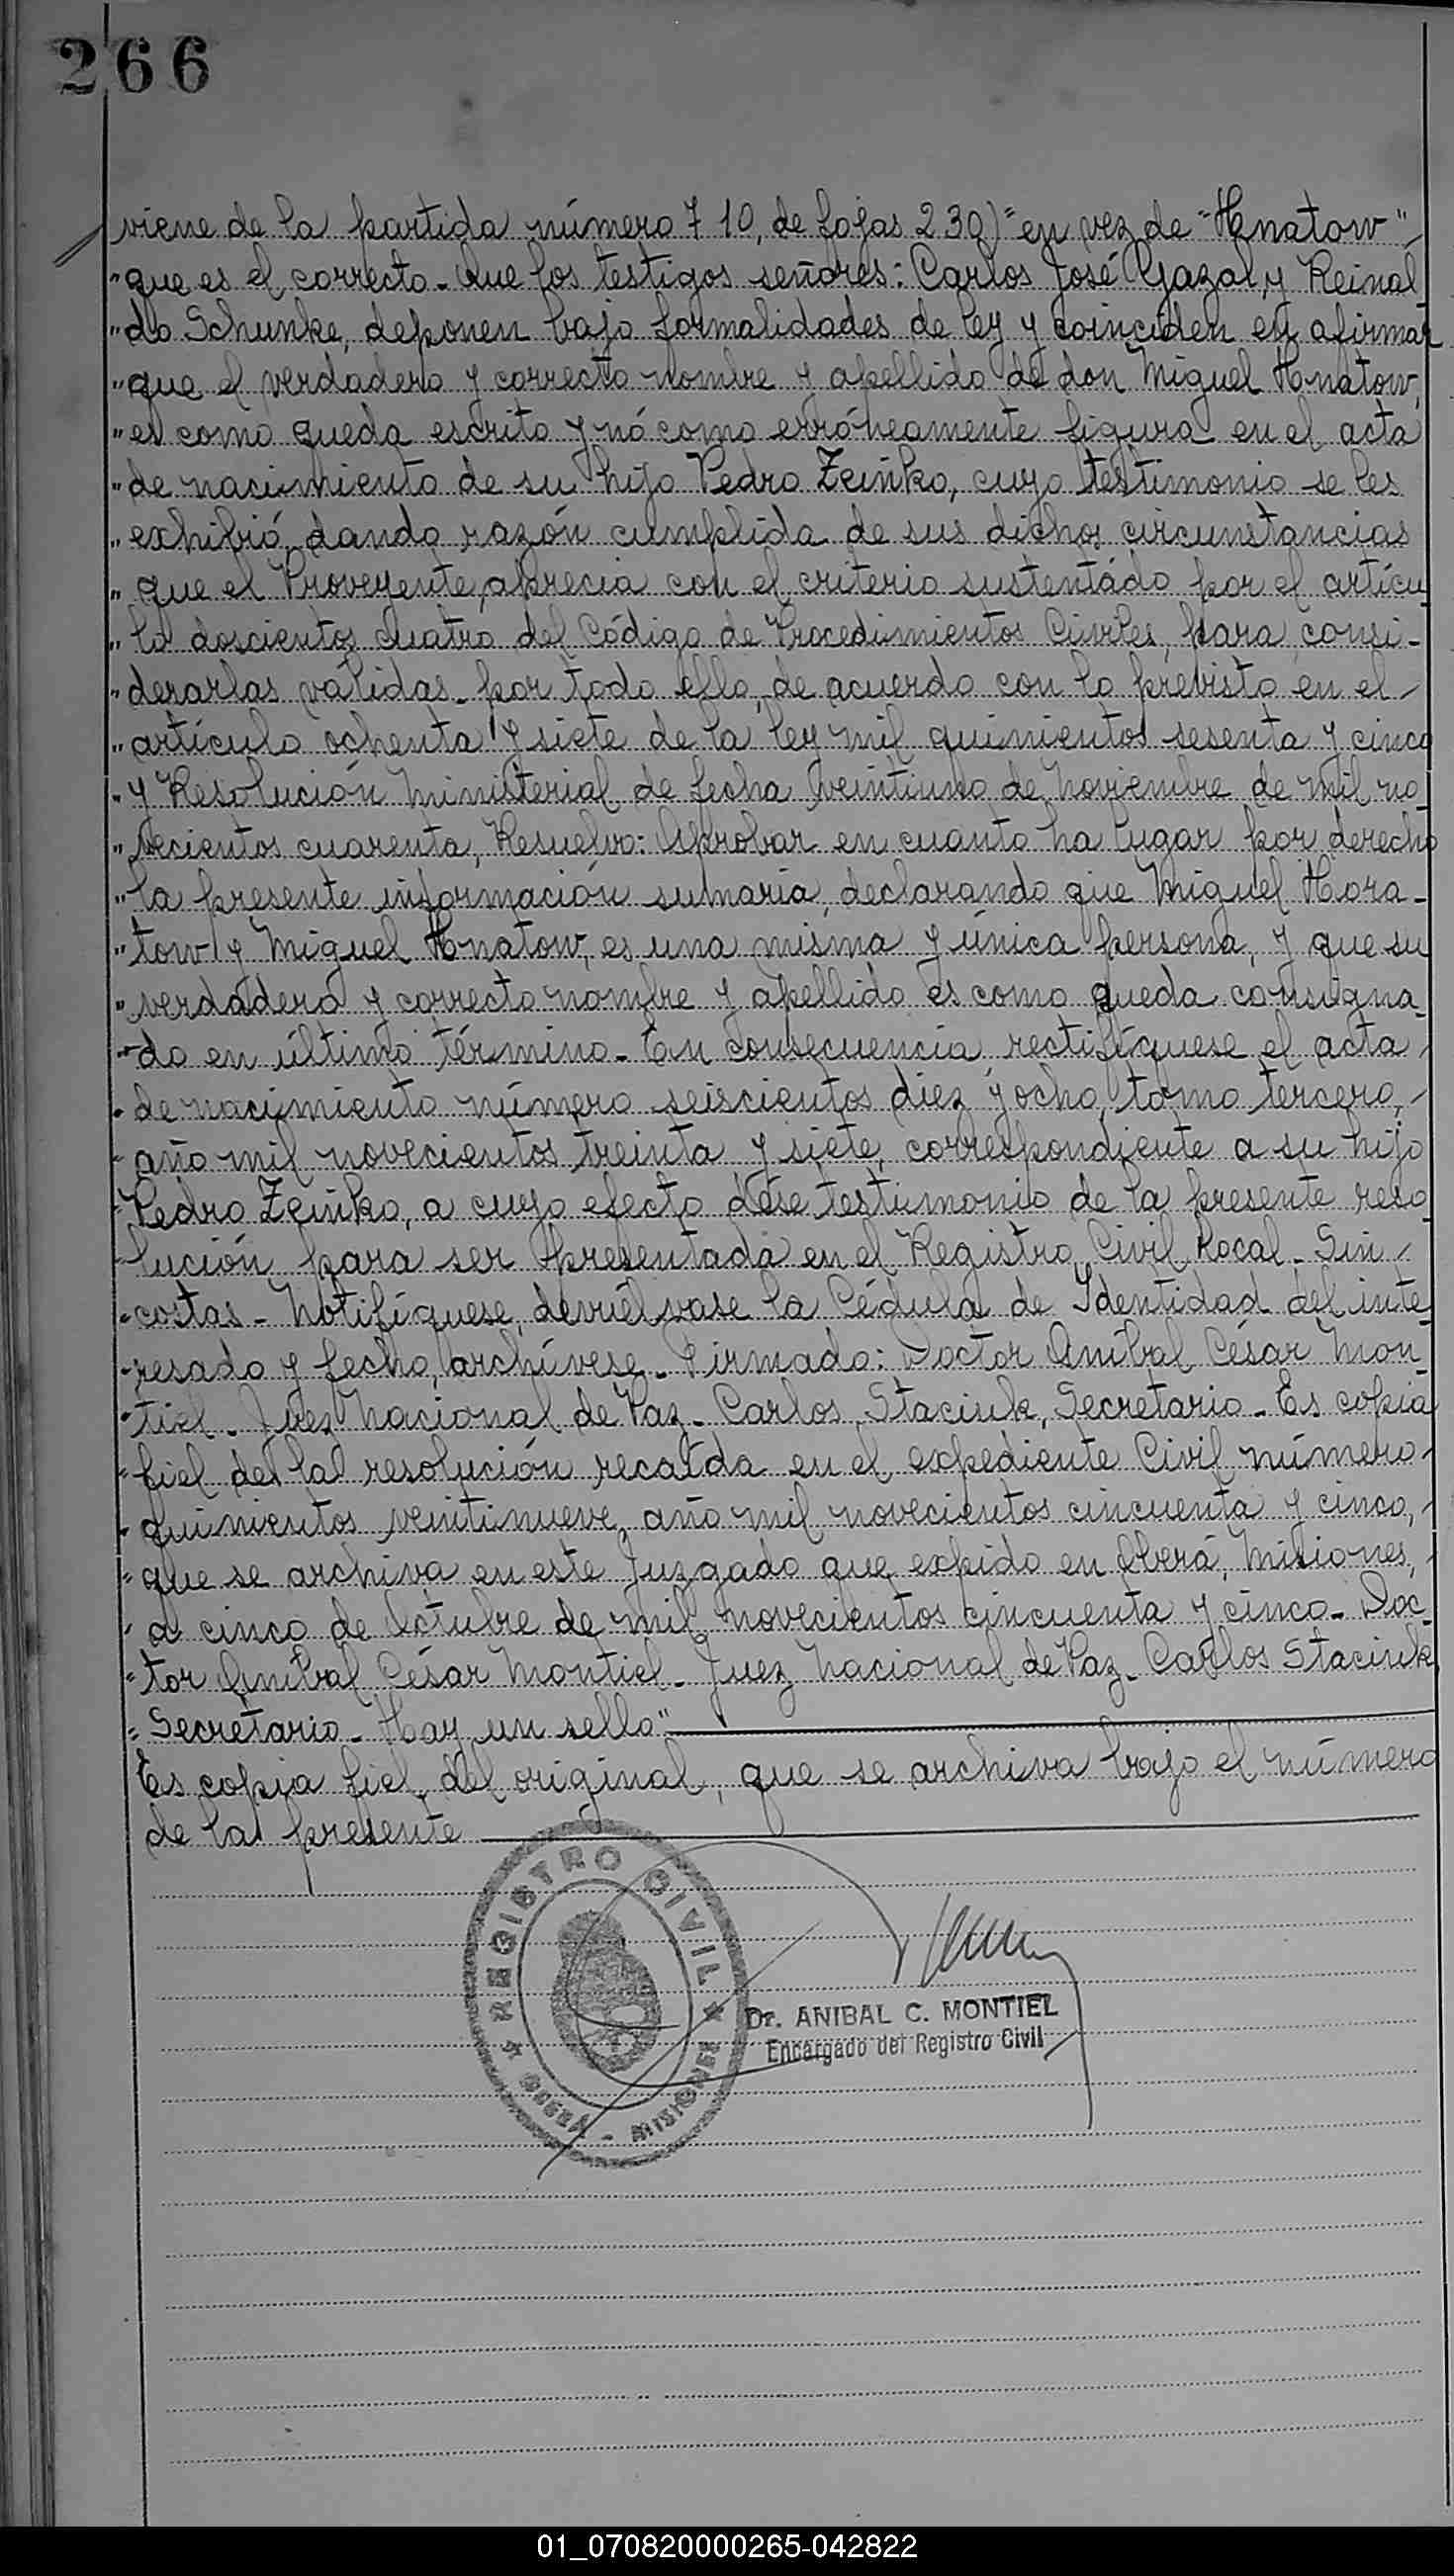 266
viene de la partida número 710, de fojas 230)" en vez de "Hnatow"
"que es el correcto.- Que los testigos señores: Carlos José Gazal, y Reinal
"do Schunke, deponen bajo formalidades de ley y coinciden en afirmar
"que el verdadero y correcto nombre y apellido de don Miguel Hnatow,
"es como queda escrito y nó como erróneamente figura en el acta
"de nacimiento de su hijo Pedro Zeinko, cuyo testimonio se les
"exhibió, dando razón cumplida de sus dichos circunstancias
"que el Proveyente, aprecia con el criterio sustentádo por el artícu
"lo doscientos cuatro del Código de Procedimientos Civiles, para consi-
"derarlas válidas.- por todo ello, de acuerdo con lo previsto en el
"artículo ochenta y siete de la ley mil quinientos sesenta y cinco
"y Resolución Ministerial de fecha veintiuno de Noviembre de mil no
"vecientos cuarenta, Resuelvo: Aprobar en cuanto ha lugar por derecho
"la presente información sumaria, declarando que Miguel Hora-
"tow y Miguel Hnatow, es una misma y única persona, y que su
"verdadero y correcto nombre y apellido es como queda consigna
"do en último término.- En consecuencia, rectifíquese el acta
"de nacimiento número seiscientos diez y ocho, tomo tercero,
"año mil novecientos treinta y siete, correspondiente a su hijo
"Pedro Zeinko, a cuyo efecto dése testimonio de la presente reso
"lución para ser presentada en el Registro Civil Local.- Sin
"costas.- Notifíquese, devuélvase la Cédula de Identidad del inte
"resado y fecho, archívese.- Firmado: Doctor Aníbal César Mon
"tiel.- Juez Nacional de Paz.- Carlos Staciuk, Secretario.- Es copia
"fiel de la resolución recaída en el expediente Civil número
"quinientos veintinueve, año mil novecientos cincuenta y cinco,
"que se archiva en este Juzgado que expido en Oberá, Misiones,
"a cinco de Octubre de mil novecientos cincuenta y cinco.- Doc
"tor Aníbal César Montiel.- Juez Nacional de Paz.- Carlos Staciuk
"Secretario.- Hay un sello".
Es copia fiel del original, que se archiva bajo el número
de la presente
REGISTRO CIVIL
OBERÁ - MISIONES
Dr. ANIBAL C. MONTIEL
Encargado del Registro Civil
01_070820000265-042822